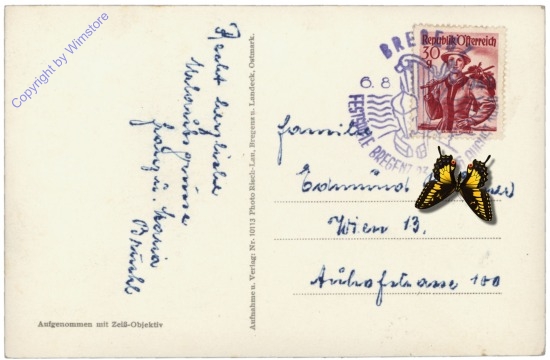 Copyright by Wimstore
Recht herzliche
Urlaubsgrüsse
Franz u. Maria
Brückl
Aufgenommen mit Zeiß-Objektiv
Aufnahme u. Verlag: Nr. 10113 Photo Risch-Lau, Bregenz u. Landeck, Ostmark.
BREGENZ
6.8
FESTSPIELE BREGENZ
Republik Österreich
30
g
Familie
Edmund
Wien 13.
Auhofstrasse 100